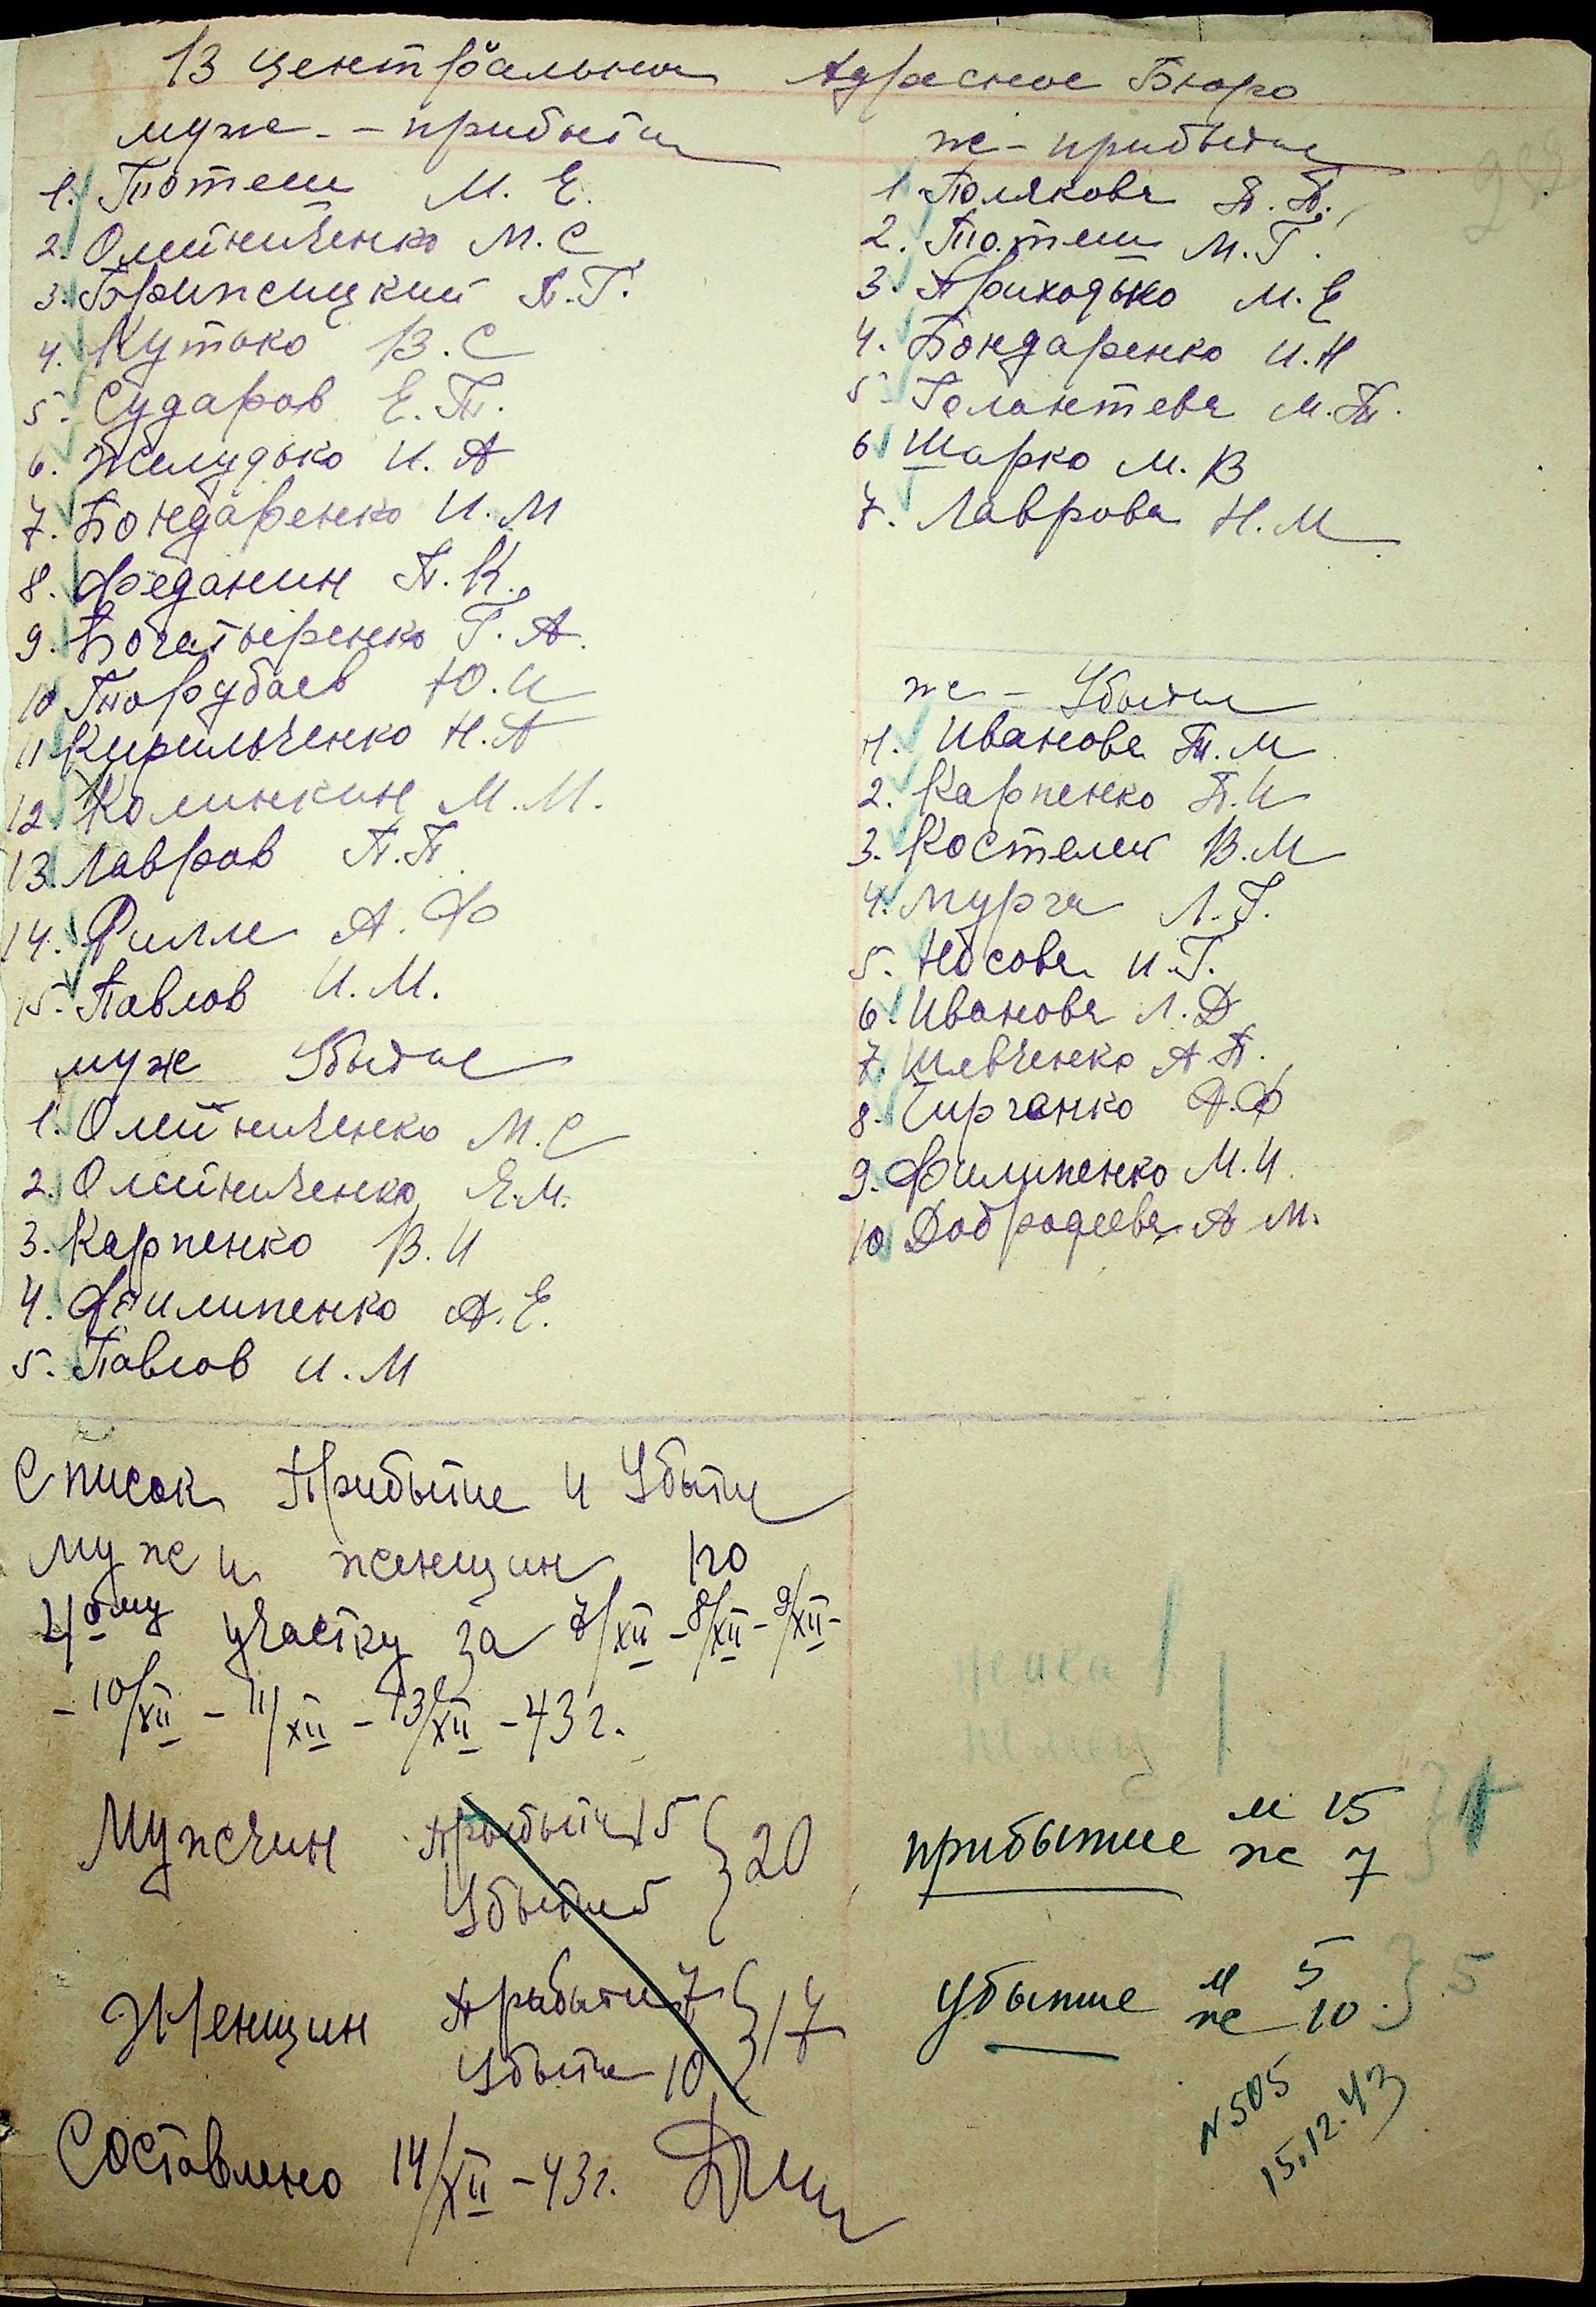 В центральное Адресное Бюро
муже - прибытие
1. Потеш М. Е.
2. Олейниченко М. С
3. Бржисицкий П. Г.
4. Кутько В. С
5. Сударов Е. П.
6. Желудько И. А
7. Бондаренко И. М
8. Феданин П. К.
9. Богатыренко Г. А.
10 Порубаев Ю. И
11 Кирильченко Н. А
12. Колинкин М. М.
13. Лавров П. П
14. Филль А. Ф
15. Павлов И. М.
муж Убытие
1. Олейниченко М. С
2. Олейниченко Е. М.
3. Карпенко В. И
4. Филипенко А. Е.
5. Павлов И. М
же - прибытие
1 Полякова П. П.
2. Потеш М. Г.
3. Приходько М. Е
4. Бондаренко И. Н
5 Галантева М. П.
6 Шарко М. В
7. Лаврова Н. М
же - Убытие
1. Иванова П. М
2. Карпенко П. И
3. Костелей В. М
4. Мурга Л. Г.
5. Носова И. Г.
6. Иванова Л. Д
7. Шевченко А П.
8. Чирганко А. Ф
9. Филипенко М. И.
10 Добродеева А М.
Список Прибытие и Убытие
Муж и женщин по
4ому участку за 7/XII - 8/XII - 9/XII -
- 10/XII - 11/XII - 13/XII - 43 г.
Мужчин Прибытие 15 } 20
Убытие 5
Женщин Прибытие 7 } 17
Убытие 10
Составлено 14/XII - 43 г.
прибытие м 15
же 7
убытие м 5 } 5
же 10
N 505
15.12.43